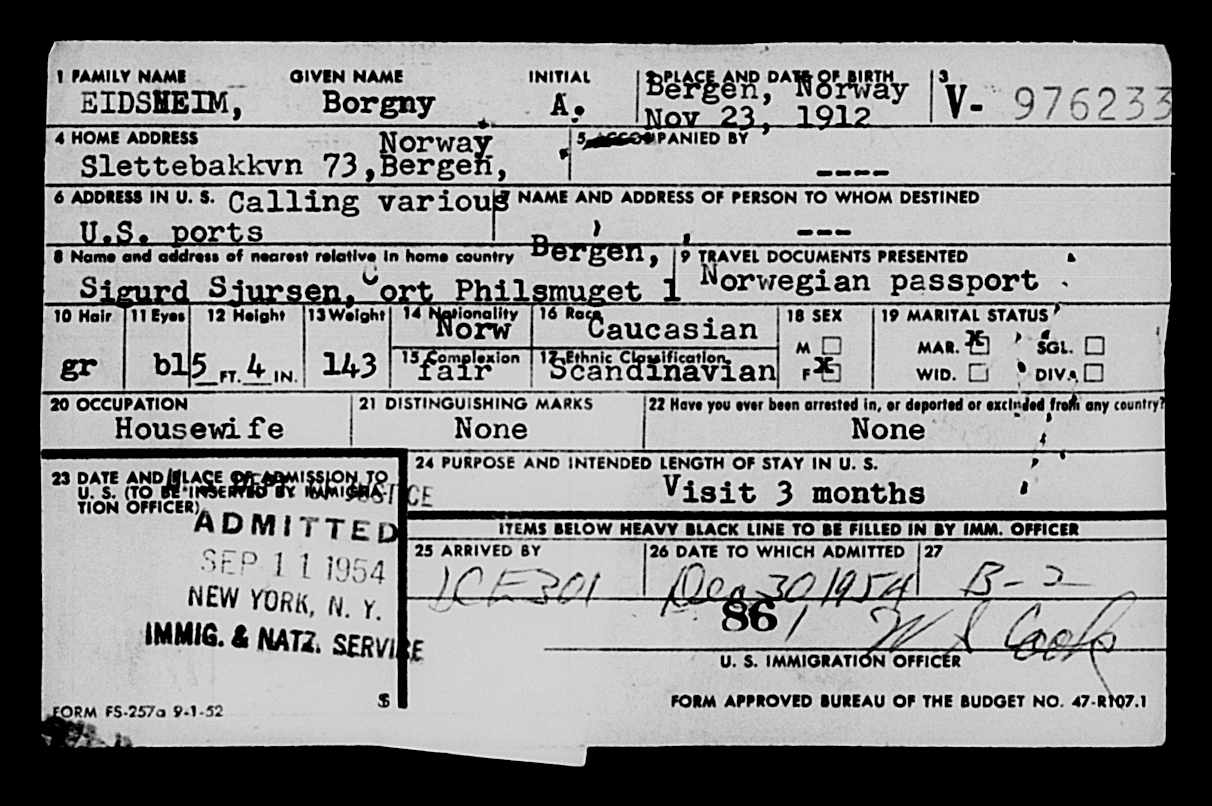 1 FAMILY NAME GIVEN NAME INITIAL 2 PLACE AND DATE OF BIRTH 3
EIDSHEIM, Borgny A. Bergen, Norway V- 976233
Nov 23, 1912
4 HOME ADDRESS Norway 5 ACCOMPANIED BY
Slettebakkvn 73, Bergen, ----
6 ADDRESS IN U. S. Calling various 7 NAME AND ADDRESS OF PERSON TO WHOM DESTINED
U.S. ports ---
8 Name and address of nearest relative in home country Bergen, 9 TRAVEL DOCUMENTS PRESENTED
Sigurd Sjursen, ort Philsmuget 1 Norwegian passport
10 Hair 11 Eyes 12 Height 13 Weight 14 Nationality 16 Race 18 SEX 19 MARITAL STATUS
gr bl 5 FT. 4 IN. 143 Norw Caucasian M MAR. X SGL.
15 Complexion 17 Ethnic Classification F X WID. DIV.
fair Scandinavian
20 OCCUPATION 21 DISTINGUISHING MARKS 22 Have you ever been arrested in, or deported or excluded from any country?
Housewife None None
23 DATE AND PLACE OF ADMISSION TO
U. S. (TO BE INSERTED BY IMMIGRA-
TION OFFICER)
24 PURPOSE AND INTENDED LENGTH OF STAY IN U. S.
Visit 3 months
ADMITTED
SEP 11 1954
NEW YORK, N. Y.
IMMIG. & NATZ. SERVICE
$
ITEMS BELOW HEAVY BLACK LINE TO BE FILLED IN BY IMM. OFFICER
25 ARRIVED BY 26 DATE TO WHICH ADMITTED 27
ICE301 Dec 30 1954 B-2
86
U. S. IMMIGRATION OFFICER
FORM FS-257a 9-1-52 FORM APPROVED BUREAU OF THE BUDGET NO. 47-R107.1